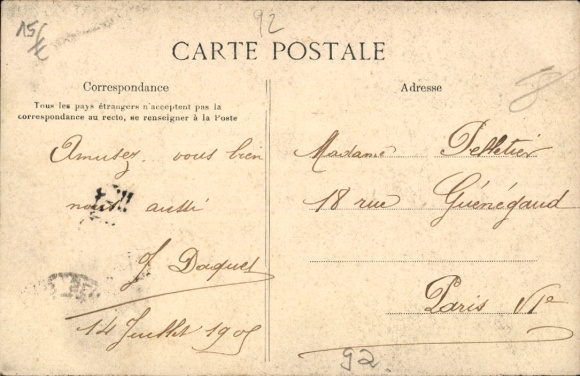 15 €
92
CARTE POSTALE
Correspondance
Tous les pays étrangers n'acceptent pas la
correspondance au recto, se renseigner à la Poste
Amusez vous bien
nous aussi
J Daquet
14 Juillet 1905
Adresse
Madame Pelletier
18 rue Guénégaud
Paris VIe
92